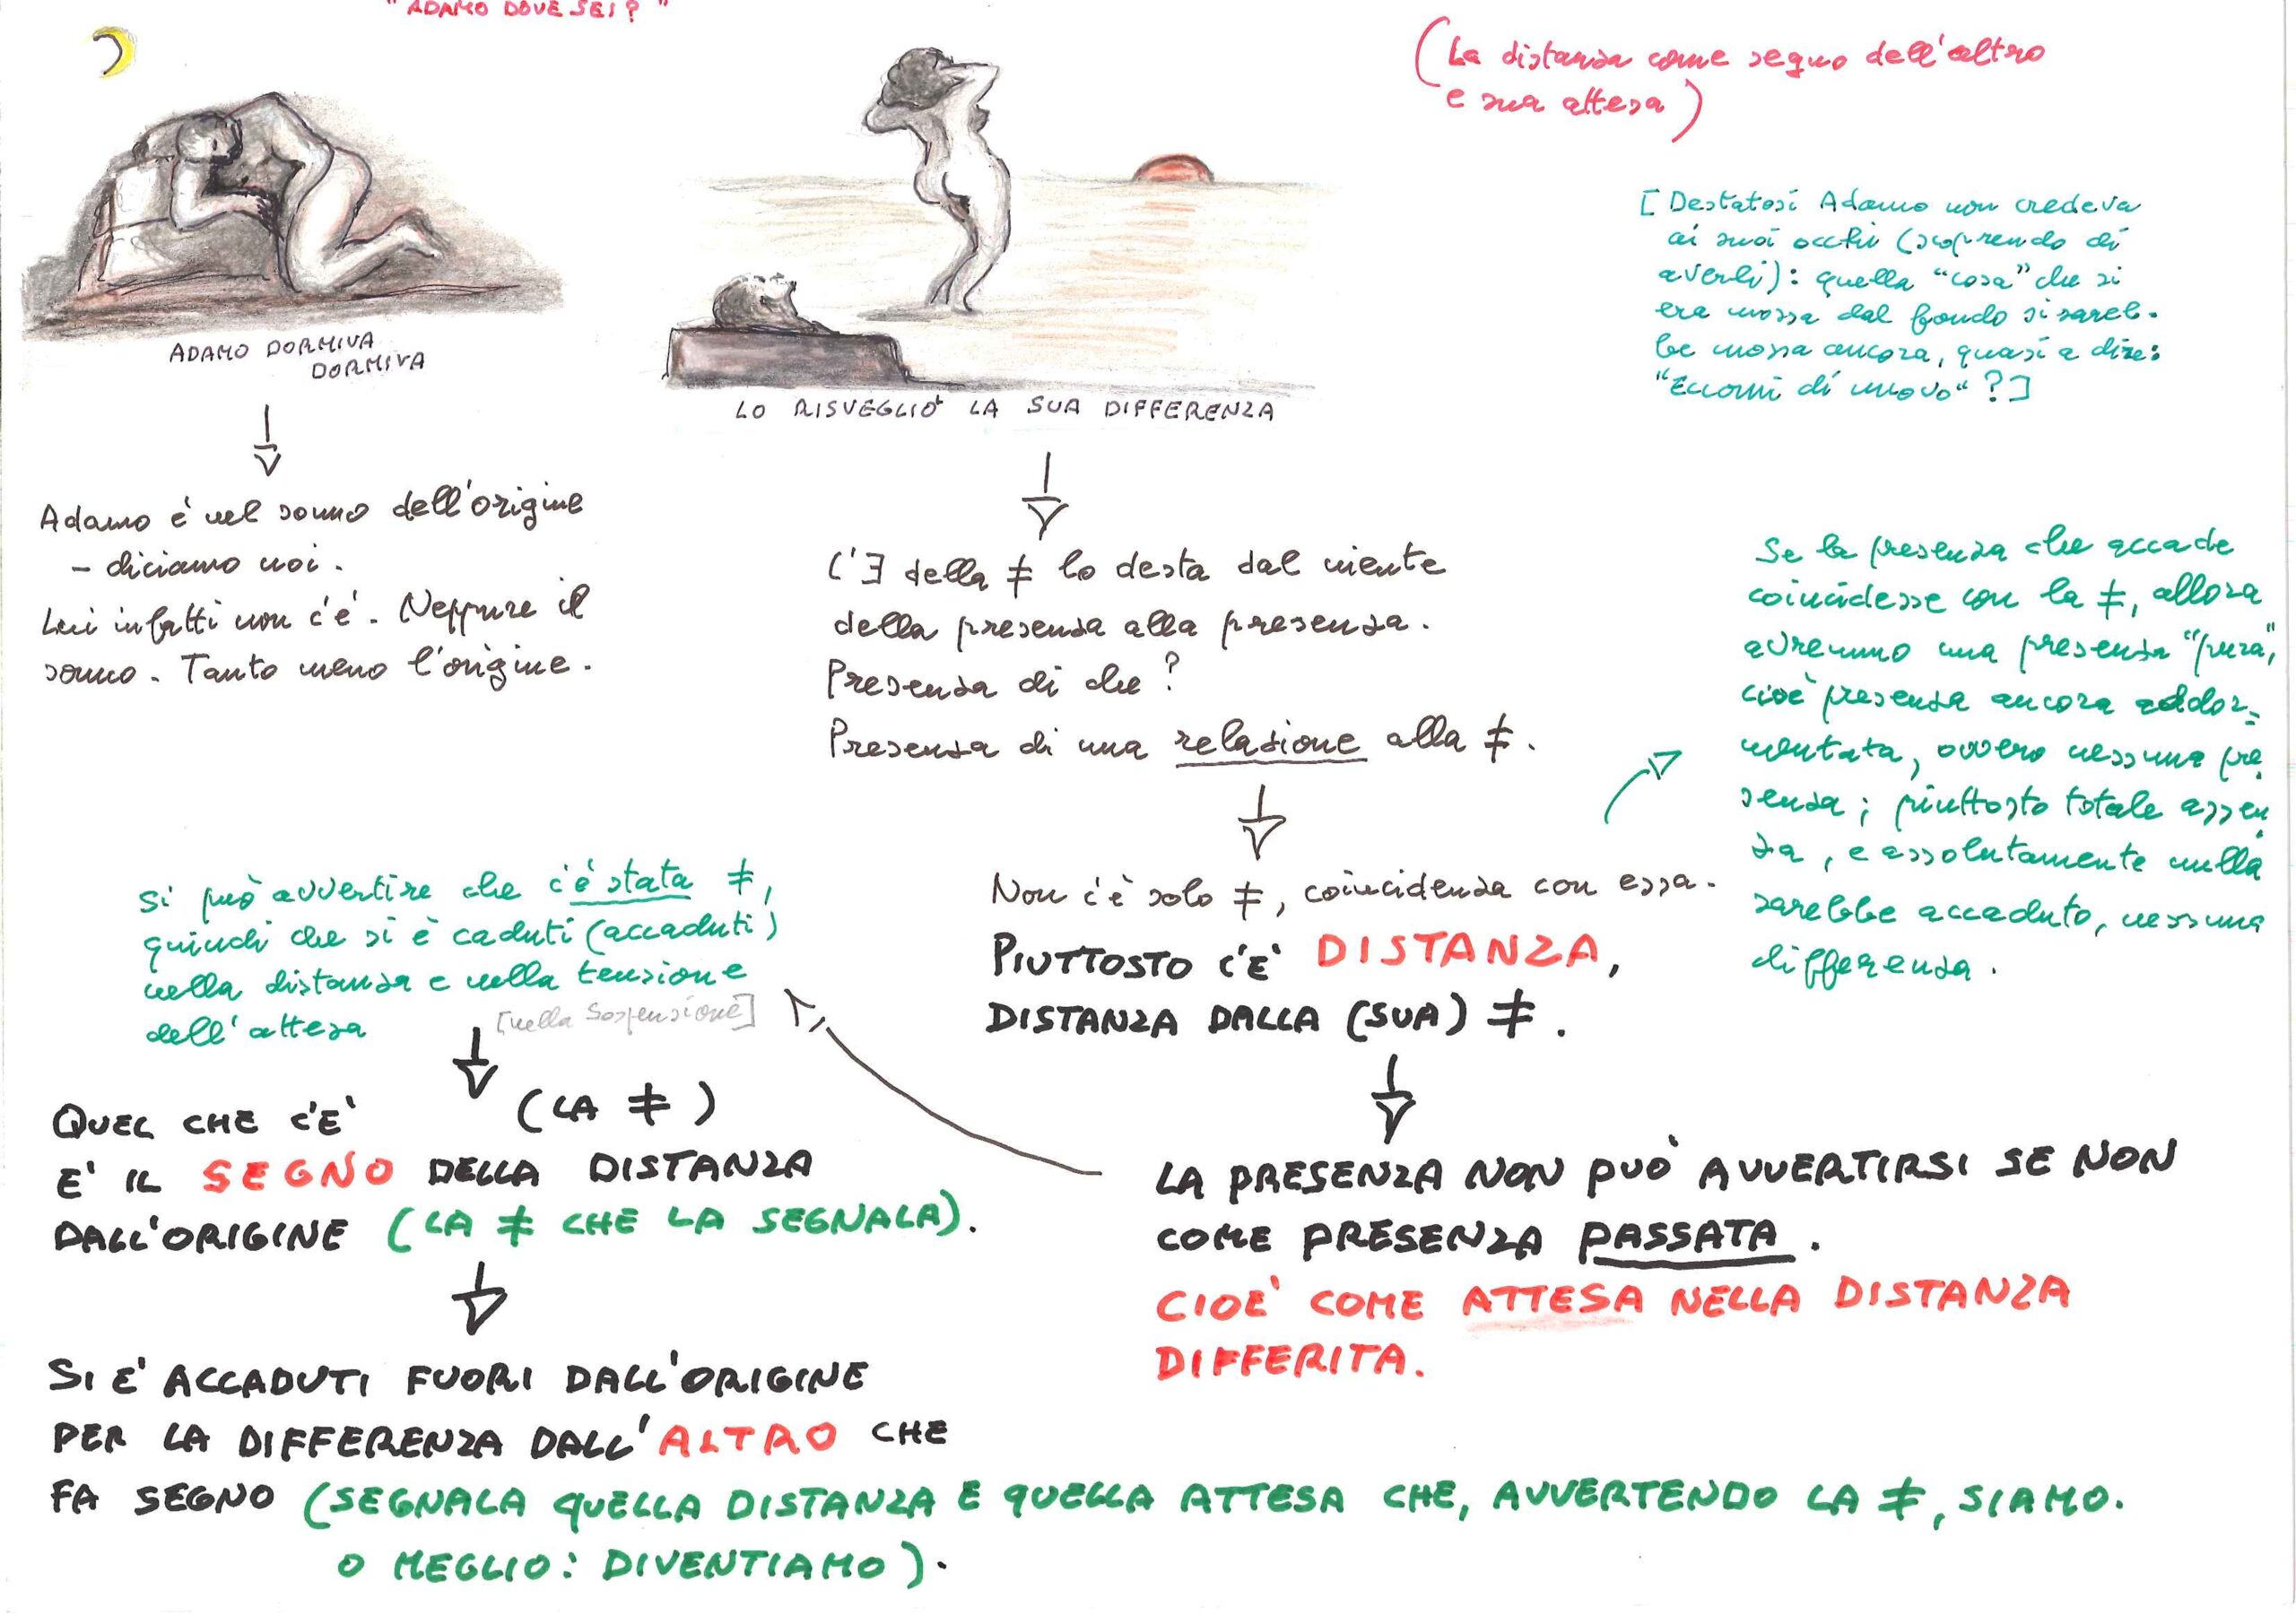 "ADAMO DOVE SEI?"
(La distanza come segno dell'altro
e sua attesa)
[Destatosi Adamo non credeva
ai suoi occhi (scoprendo di
averli): quella "cosa" che si
era mossa dal fondo si sareb-
be mossa ancora, quasi a dire:
"Eccomi di nuovo"?]
ADAMO DORMIVA
DORMIVA
LO RISVEGLIÒ LA SUA DIFFERENZA
Adamo è nel sonno dell'origine
- diciamo noi.
Lui infatti non c'è. Neppure il
sonno. Tanto meno l'origine.
L'∃ della ≠ lo desta dal niente
della presenza alla presenza.
Presenza di che?
Presenza di una relazione alla ≠.
Non c'è solo ≠, coincidenza con essa.
PIUTTOSTO C'E' DISTANZA,
DISTANZA DALLA (SUA) ≠.
Se la presenza che accade
coincidesse con la ≠, allora
avremmo una presenza "pura",
cioè presenza ancora addor-
mentata, ovvero nessuna pre
senza; piuttosto totale assen
za, e assolutamente nulla
sarebbe accaduto, nessuna
differenza.
LA PRESENZA NON PUÒ AVVERTIRSI SE NON
COME PRESENZA PASSATA.
CIOE' COME ATTESA NELLA DISTANZA
DIFFERITA.
Si può avvertire che c'è stata ≠,
quindi che si è caduti (accaduti)
nella distanza e nella tensione
dell'attesa [nella sospensione]
QUEL CHE C'E' (LA ≠)
E' IL SEGNO DELLA DISTANZA
DALL'ORIGINE (LA ≠ CHE LA SEGNALA).
SI E' ACCADUTI FUORI DALL'ORIGINE
PER LA DIFFERENZA DALL'ALTRO CHE
FA SEGNO (SEGNALA QUELLA DISTANZA E QUELLA ATTESA CHE, AVVERTENDO LA ≠, SIAMO.
O MEGLIO: DIVENTIAMO).